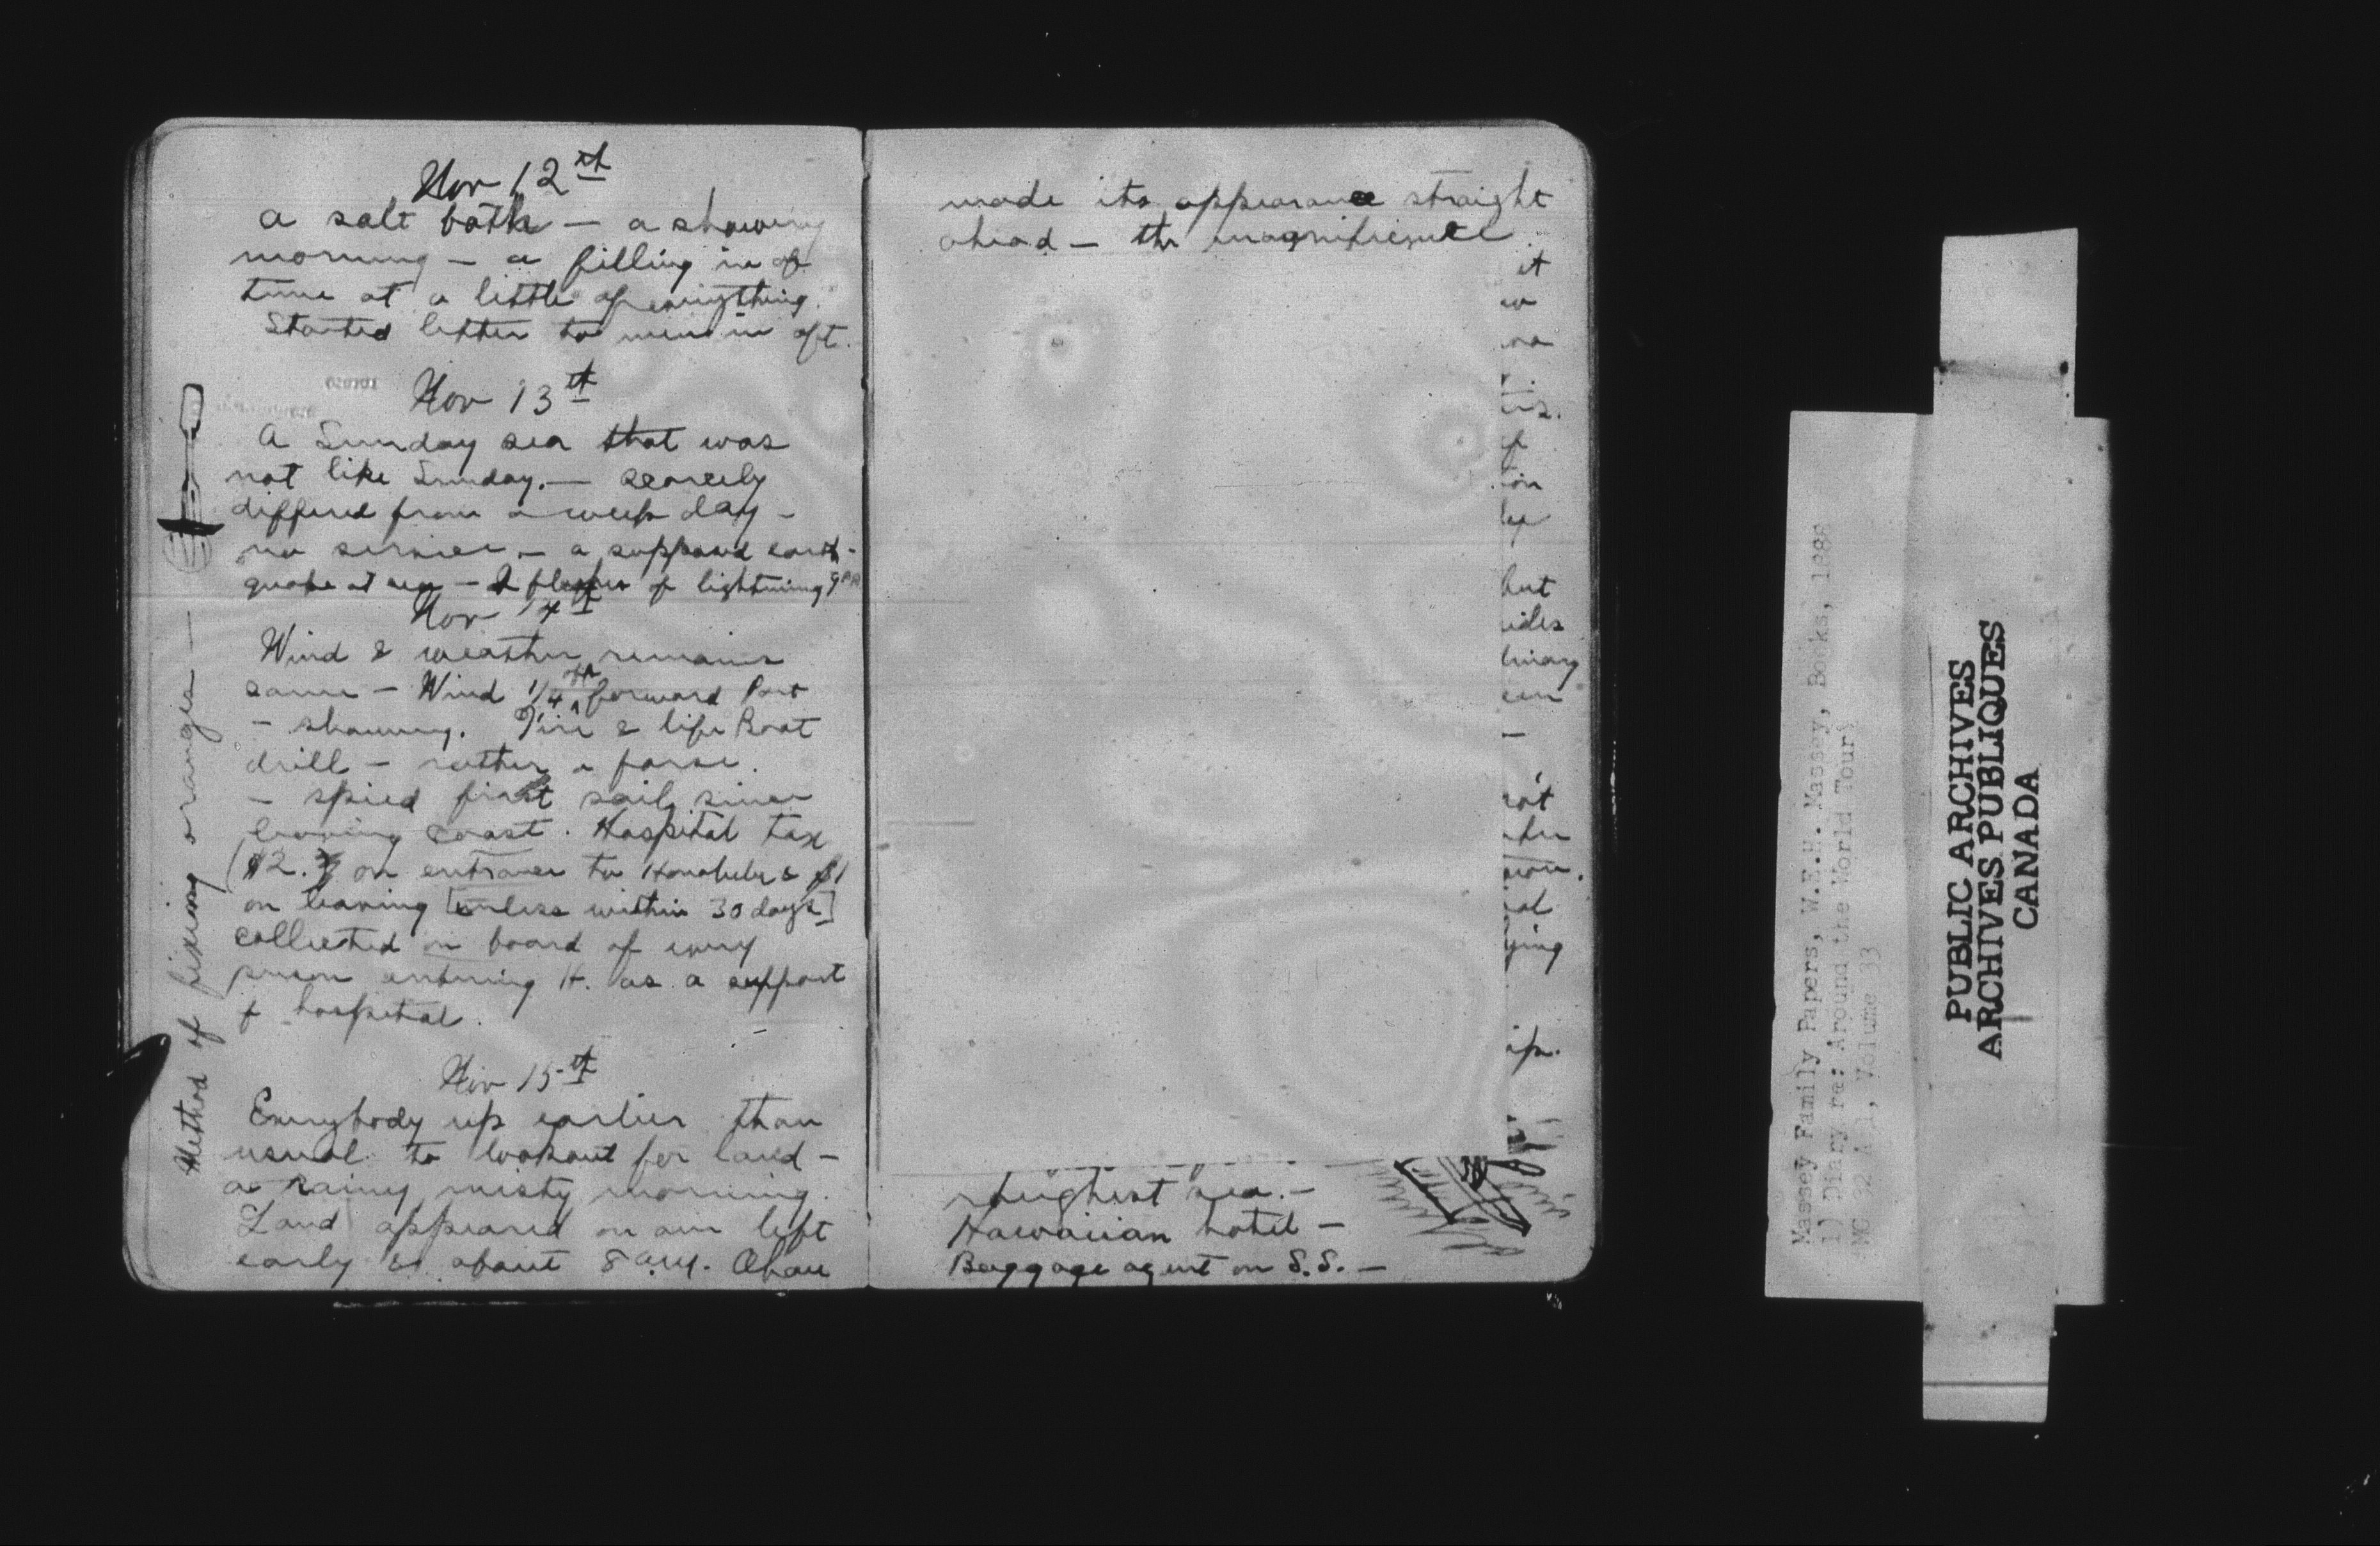 Nov 12th
A salt bath — a showery
morning — a filling in of
time at a little of everything.
Started letter to men in aft.
Nov 13th
A Sunday sea that was
not like Sunday. — scarcely
differed from a week day —
no service. — a supposed earth-
quake at sea — 2 flashes of lightning
Nov 14th
Wind & weather remains
same — Wind 1/4 forward Port
— showery. Fire & life Boat
drill — rather a farse.
— spied first sail since
leaving coast. Hospital tax
($2. on entrance to Honolulu & $1
on leaving [unless within 30 days]
collected on board of every
person entering H. as a support
of hospital.
Nov 15th
Everybody up earlier than
usual to lookout for land —
a rainy, misty morning.
Land appeared on our left
early & about 8 a.m. Ohau
Method of fixing oranges —
made its appearance straight
ahead — the magnificence
it
w
no
f
ion
but
ides
linary
een
not
ial
ying
ip.
roughest sea. —
Hawaiian hotel —
Baggage agent on S.S. —
Massey Family Papers, W.E.H. Massey, Books, 1988
1) Diary re: Around the World Tour
MG 32 A 1, Volume 33
PUBLIC ARCHIVES
ARCHIVES PUBLIQUES
CANADA